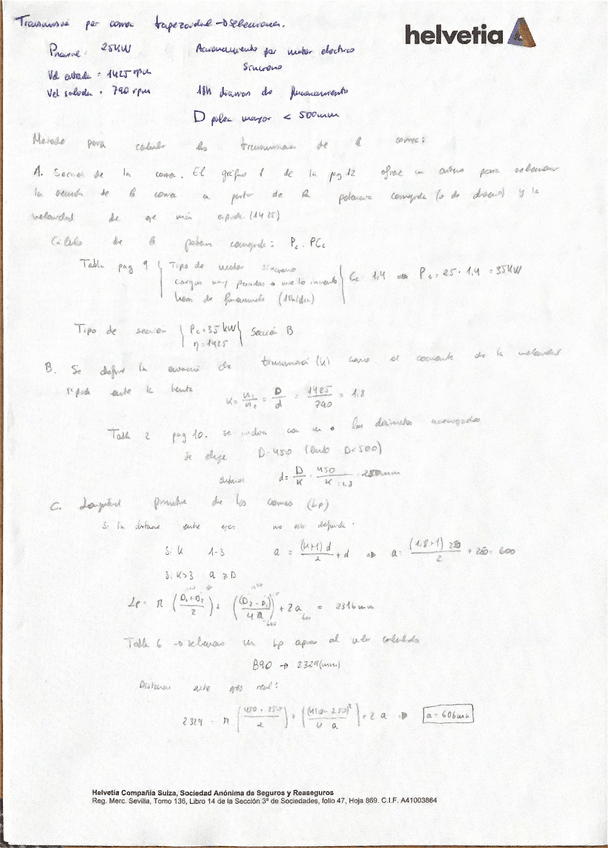 helvetia
Transmision por correa trapezoidal → Seleccionar.
Pnominal: 25KW Accionamiento por motor electrico
Sincrono
Vel entrada = 1425 rpm
Vel salida = 790 rpm 18h diarias de funcionamiento
D polea mayor < 500mm
Metodo para calcular las transmisiones de la correa:
A. Seccion de la correa. El gráfico 1 de la pag 12 ofrece un criterio para seleccionar
la sección de la correa a partir de la potencia corregida (o de diseño) y la
velocidad de eje más rápido (1425)
Calculo de la potencia corregida: Pc = P·Cc
Tabla pag 9 Tipo de motor sincrono
horas de funcionamiento (18h/dia)
Cc 1,4 Pc = 25 · 1,4 = 35KW
Tipo de sección Pc = 35 KW Sección B
n = 1425
B. Se define la relación de transmisión (K) como el cociente de la velocidad
rápida entre la lenta K = n1/n2 = D/d = 1425/790 = 1.8
Tabla 2 pag 10. se indica con un o los diametros aconsejados
Se elige D = 450 (limite D<500)
d = D/K = 450/1.8 = 250mm
C. Longitud primitiva de las correas (Lp)
Si la distancia entre ejes no esta definida:
Si K 1-3 a = (K+1) d / 2 + d ⇒ a = (1.8+1) 250 / 2 + 250 = 600
Si K>3 a ≥ D
Lp = π (D1+D2 / 2) + ((D2-D1)² / 4a) + 2a = 2316mm
Tabla 6 → Seleccionar un Lp aprox al valor calculado
B90 → 2329 (mm)
Distancia entre ejes real:
2329 = π (450+250 / 2) + ((450-250)² / 4a) + 2a ⇒ a = 606mm
Helvetia Compañía Suiza, Sociedad Anónima de Seguros y Reaseguros
Reg. Merc. Sevilla, Tomo 136, Libro 14 de la Sección 3ª de Sociedades, folio 47, Hoja 869. C.I.F. A41003864